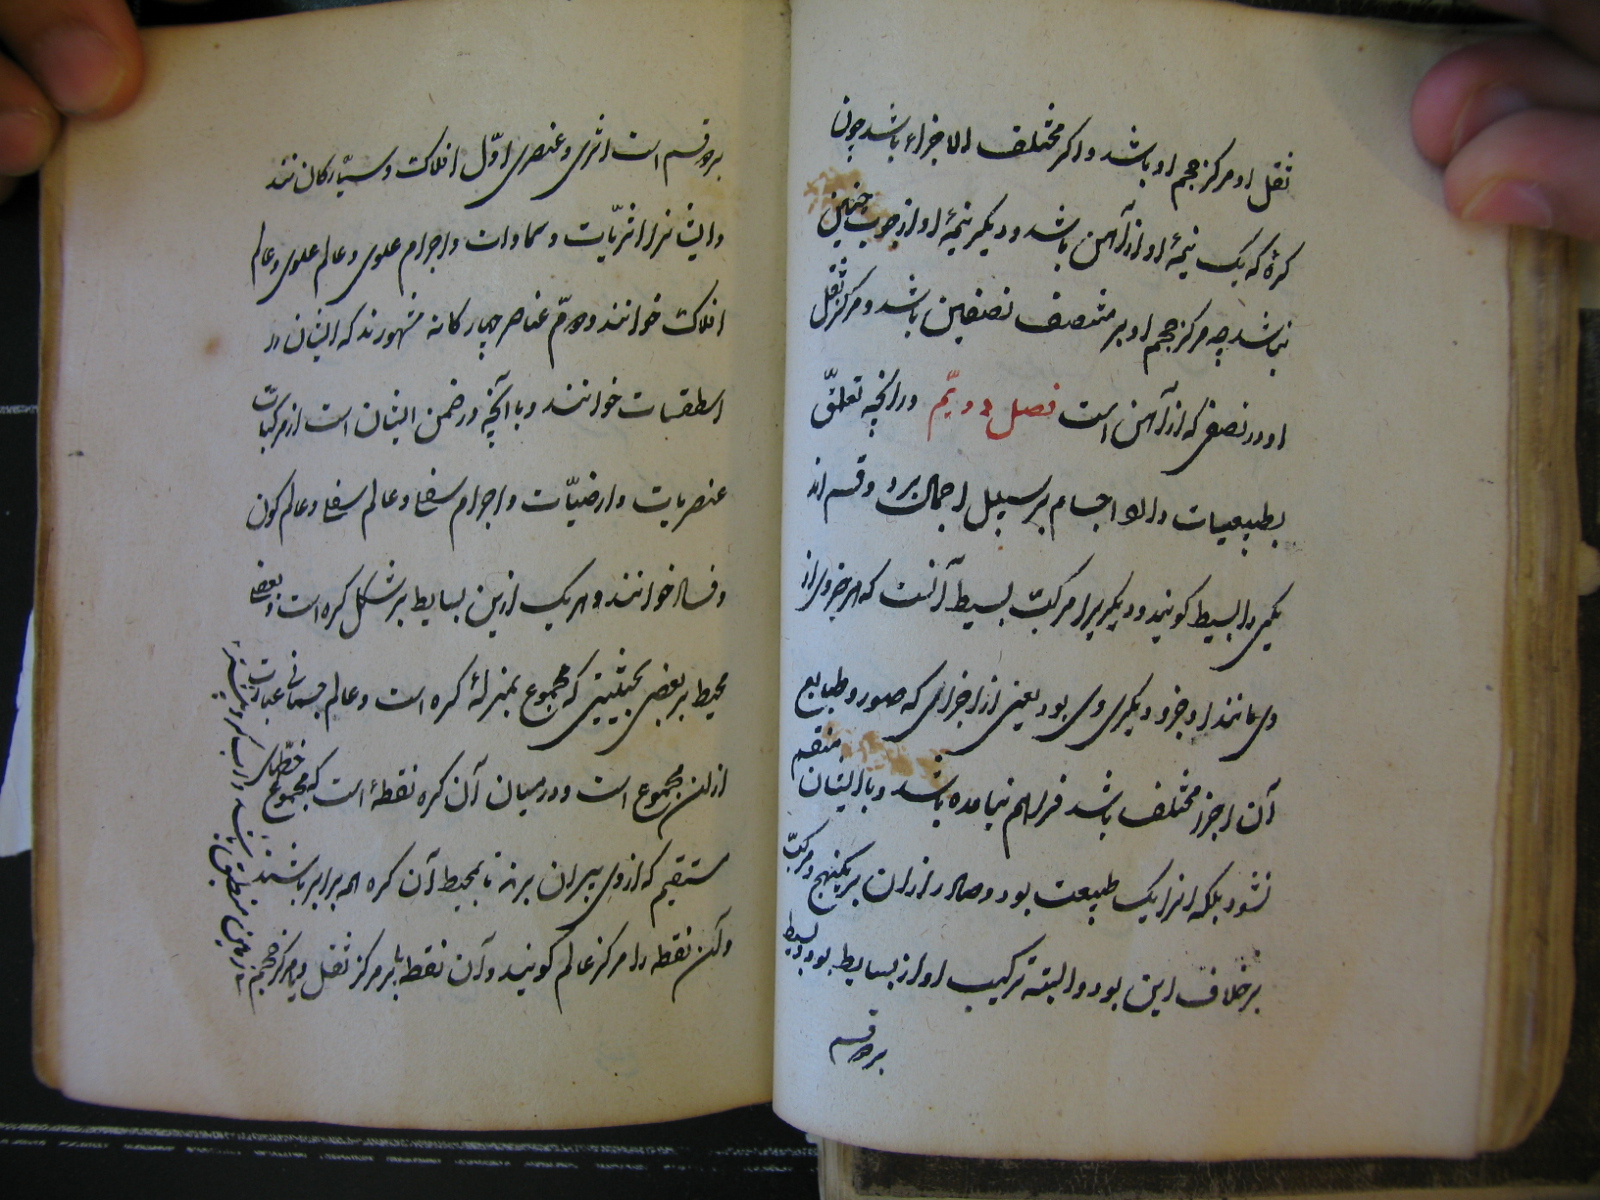 ثقل او مرکز حجم او باشد و اکر مختلف الاجزاء باشد چون
کرهٔ که یک نیمهٔ او از آهن باشد و دیکر نیمهٔ او از چوب چنین
نباشد چه مرکز حجم او بر منتصف نصفین باشد و مرکز ثقل
او در نصفی که از آهن است فصل دویّم در آنچه تعلّق
بطبیعیات دارد اجسام بر سبیل اجمال بر دو قسم اند
یکی را بسیط کویند و دیکریرا مرکبّ بسیط آنست که هر جزوی از
وی مانند او جزو دیکری وی بود یعنی از اجزای که صور و طبایع
آن اجزا مختلف باشد فراهم نیامده باشد و باایشان منقسم
نشود بلکه انرا یک طبیعت بود و صادر از ان بر یکنهج و مرکبّ
بر خلاف این بود و البته ترکیب او از بسایط بود و بسیط
بر دو قسم
بر دو قسم است اثیری و عنصری اوّل افلاکت و سیّارکان
و ایشانرا اثیریّات و سماوات و اجرام علوی و عالم علوی و عالم
افلاکت خوانند و دویّم عناصر چهارکانه مشهورند که ایشان را
اسطقسات خوانند و با آنچه در ضمن ایشان است از مرکبّات
عنصریات و ارضیّات و اجرام سفلی و عالم سفلی و عالم کون
و فساد خوانند و هر یک ازین بسایط بر شکل کره است و بعضی
محیط بر بعضی بحیثیتی که مجموع بمنزلهٔ کره است و عالم جسمانی عبارت
ازان مجموع است و در میان آن کره نقطهٔ است که مجموع خطهای
مستقیم که از وی بیرون برند تا بمحیط آن کره همه برابر باشند
و آن نقطه را مرکز عالم کویند و آن نقطه بر مرکز ثقل و مرکز حجم